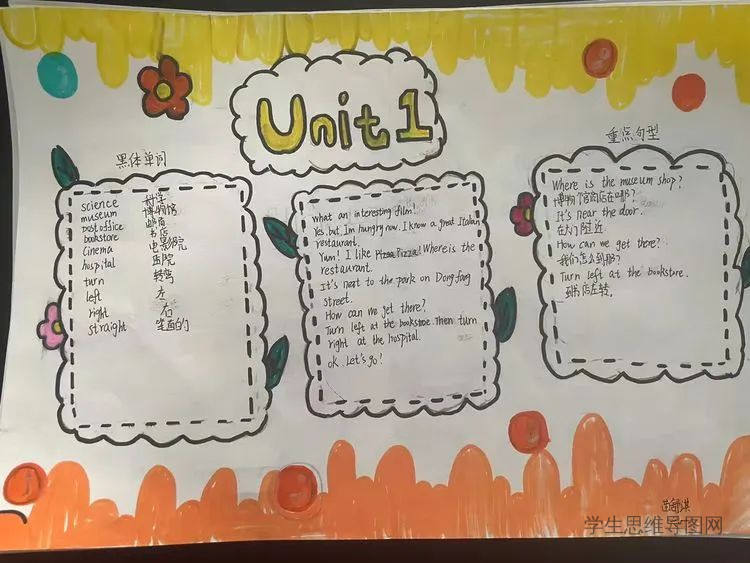 Unit 1
黑体单词
science 科学
museum 博物馆
post office 邮局
bookstore 书店
cinema 电影院
hospital 医院
turn 转弯
left 左
right 右
straight 笔直的
what an interesting film!
Yes, but I'm hungry now. I know a great Italian
restaurant.
Yum! I like Pizza! Where is the
restaurant.
It's next to the park on Dongfang
street.
How can we get there?
Turn left at the bookstore. Then turn
right at the hospital.
ok. Let's go!
重点句型
Where is the museum shop?
博物馆商店在哪?
It's near the door.
在大门附近.
How can we get there?
我们怎么到那?
Turn left at the bookstore.
到书店左转.
学生思维导图网